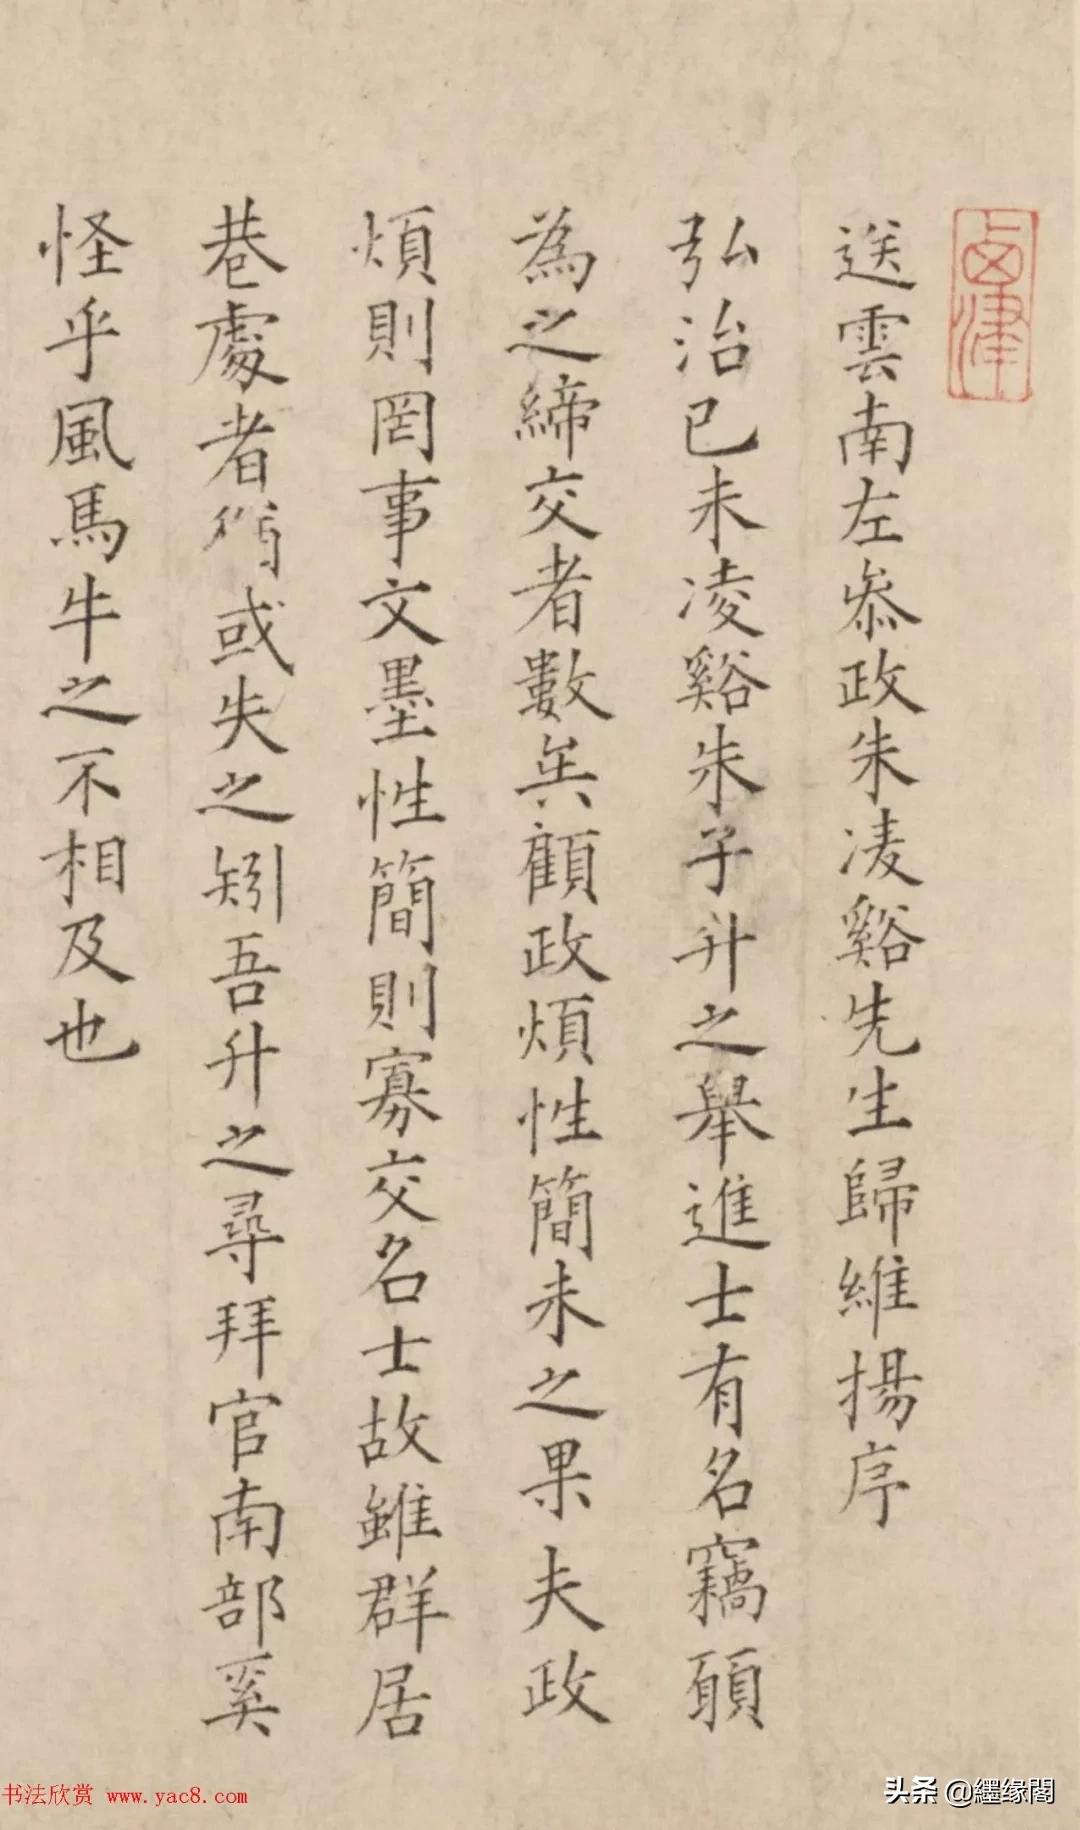 送雲南左叅政朱凌谿先生歸維揚序
弘治己未凌谿朱子升之舉進士有名竊願
為之締交者數矣顧政煩性簡未之果夫政
煩則罔事文墨性簡則寡交名士故雖群居
巷處者猶或失之矧吾升之尋拜官南部奚
怪乎風馬牛之不相及也
书法欣赏 www.yac8.com
头条 @繧缘閣